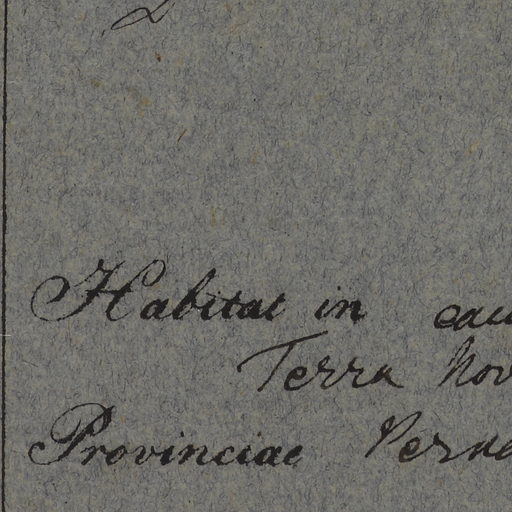 Habitat in cau
Terra Nov
Provinciae Perna